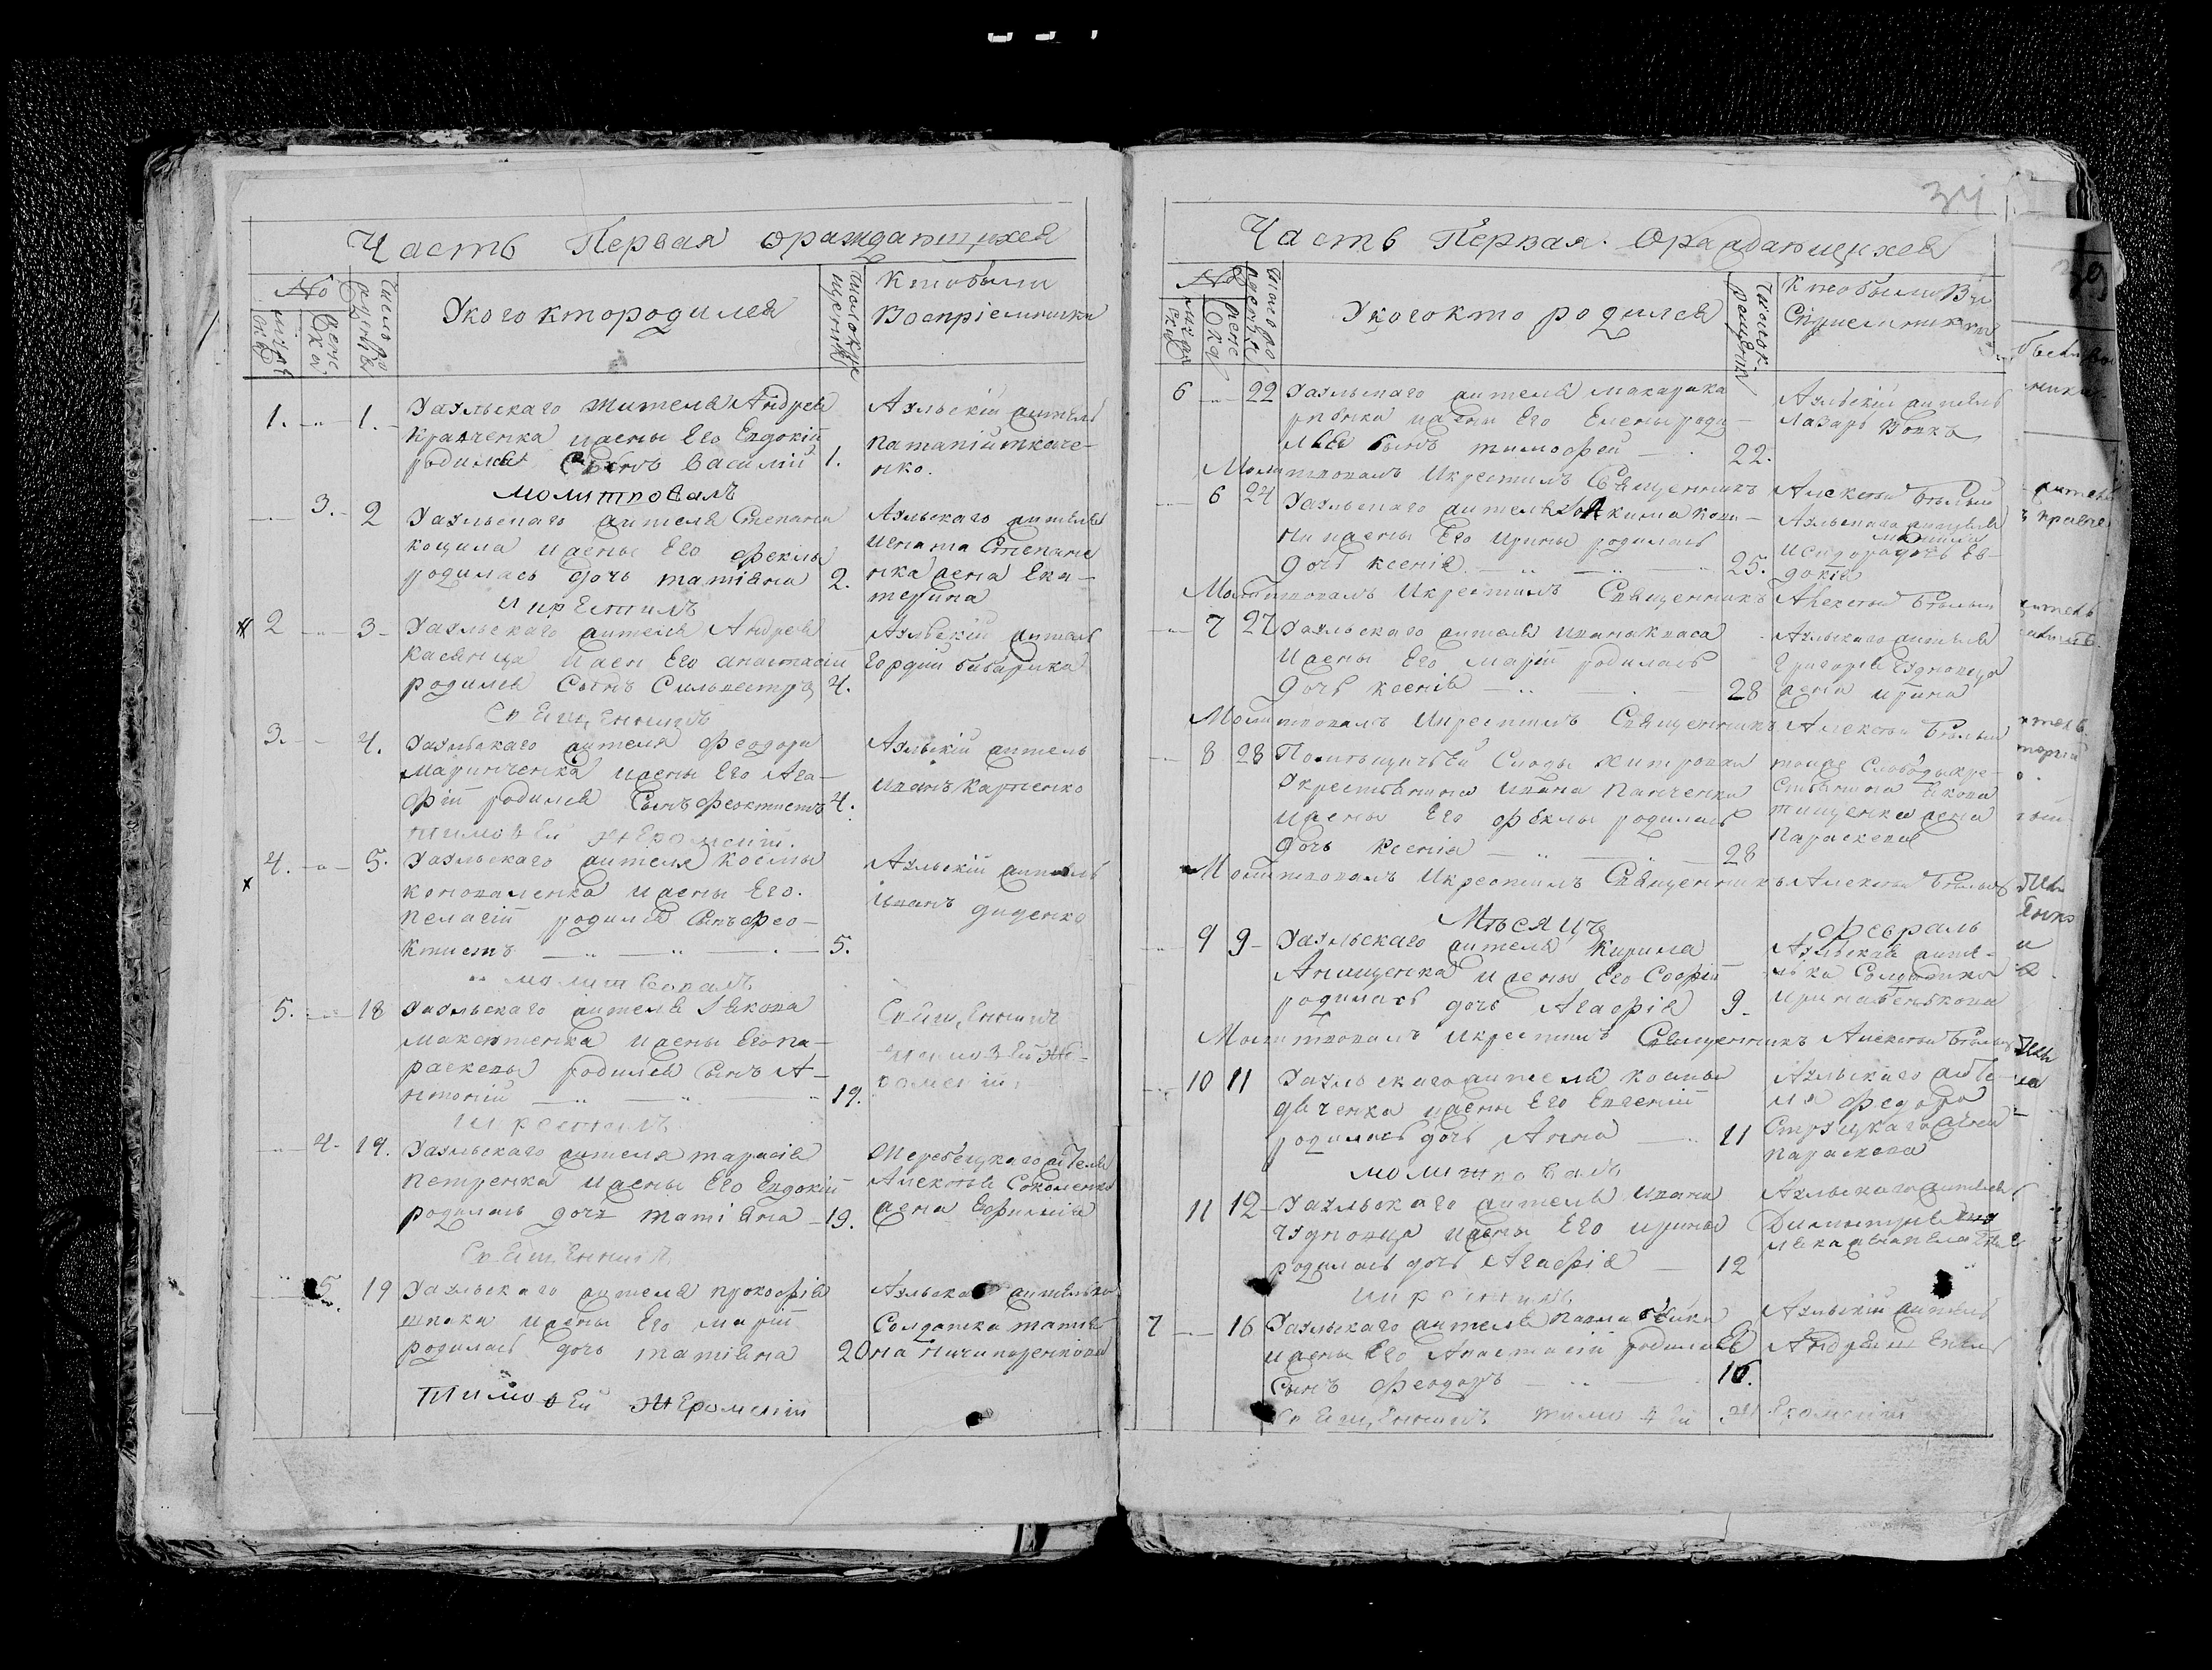 Часть Первая ораждающихся
№
мужеск
женска
Число рожденія
У кого кто родился
Число крещенія
Кто были
Воспріемники
1. 1. Уаульскаго жителя Андрея
Кравченка ижены Его Евдокіи
родился сынъ Василий 1.
Аульскій житель
Потапій ткаче-
нко.
молитвовалъ
3. 2 Уаульскаго жителя Степана
коцила ижены Его Феклы
родилась дочь татіяна 2.
Аульскаго жителя
Игната Степане
нка жена Ека-
терина
и крЕстилъ
2 3 Уаульскаго жителя Андрея
Касяница ижен Его анастасіи
родился Сынъ Сильвестръ 4.
Аульскій житель
Гордій бабарика
СвЕщЕнникъ
3. 4. Уаульскаго жителя Феодора
Маринченка ижены Его Ага-
фіи родился Сынъ Феоктистъ 4.
Аульскій житель
Иванъ Карпенко
тимоѳЕй жЕромскій.
4. 5. Уаульскаго жителя космы
коноваленка ижены Его.
пелагіи родился Сынъ Фео-
ктистъ 5.
Аульскій житель
Иванъ диденко
молитвовалъ
5. 18 Уаульскаго жителя Якова
ижены Его па-
раскевы родился Сынъ А-
нтоній 19.
СвЕщЕнникъ
тимоѳЕй жЕ-
ромскій
и крестилъ
4. 19. Уаульскаго жителя тарасія
Петренка ижены Его Евдокіи
родилась дочь татіяна 19.
жителя
Алексѣя Соколенка
жена Ефимія
СвЕщЕнникъ
5. 19 Уаульскаго жителя прокофія
шпака ижены Его маріи
родилась дочь татіяна 20
Аульска жителька
Солдатка татія-
на ничипоренкова
тимоѳЕй жЕромскій
34
Часть Первая. Ораждающихся
№
мужеск
женска
Число рожденія
У кого кто родился
Число крещенія
Кто были Во
спріемники
6 22 Уаульскаго жителя
ижены Его Елены роди-
лся сынъ тимофей 22.
Аульскій житель
Лазарь Вовкъ
Молитвовалъ Икрестилъ Священникъ Алексѣй Бѣлый
6 24 Уаульскаго жителя
ижены Его Ирины родилась
дочь ксенія 25.
Аульскаго жителя
Исидора дочь Ев-
докія
Молитвовалъ Икрестилъ Священникъ Алексѣй Бѣлый
7 27 Уаульскаго жителя Ивана кваса
Ижены Его маріи родилась
дочь ксенія 28
Аульскаго жителя
Григорія Чудновца
жена Ирина
Молитвовалъ Икрестилъ Священникъ Алексѣй Бѣлый
8 28
Укрестьянина Ивана Панченка
ижены Его Феклы родилась
дочь ксенія 28
тойже Слободы кре-
стьянина Якова
тищенка жена
Параскева
Молитвовалъ Икрестилъ Священникъ Алексѣй Бѣлый
Мѣсяцъ февраль
9 9 Уаульскаго жителя Кирила
Анищенка ижены Его Софіи
родилась дочь Агафія 9
Аульская жите-
лька Солдатка
Ирина бенькова
Молитвовалъ Икрестилъ Священникъ Алексѣй Бѣлый
10 11 Уаульскаго жителя космы
дяченка ижены Его Евгеніи
родилась дочь Анна 11
Аульскаго жите-
ля Федора
Струцкаго жена
параскева
молитвовалъ
11 12 Уаульскаго жителя Ивана
чудновца ижены Его ирины
родилась дочь Агафія 12
Аульскаго жителя
Димитрія
и крестилъ
7 16 Уаульскаго жителя Павла
ижены Его Анастасіи родился
Сынъ Феодоръ 16.
Аульскій житель
Андрей
СвЕщЕнникъ тимоѳЕй жЕромскій